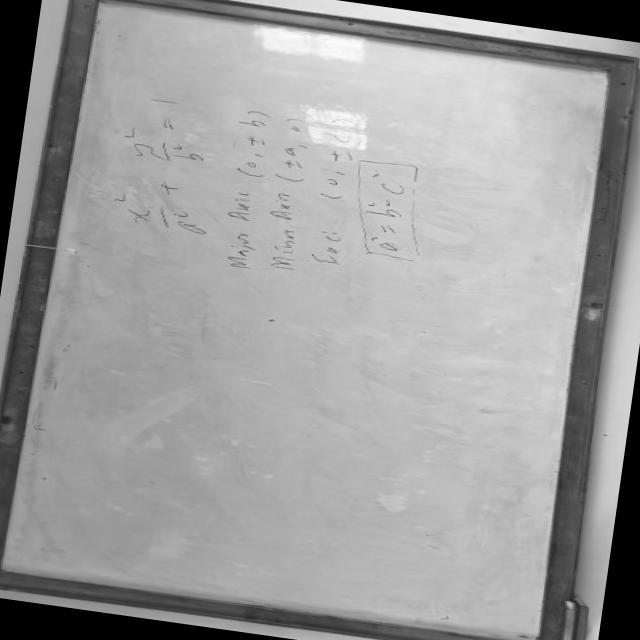 x²/a² + y²/b² = 1
Major Axis (0, ± b)
Minor Axis (±a, 0)
Foci (0, ± c)
a² = b² - c²